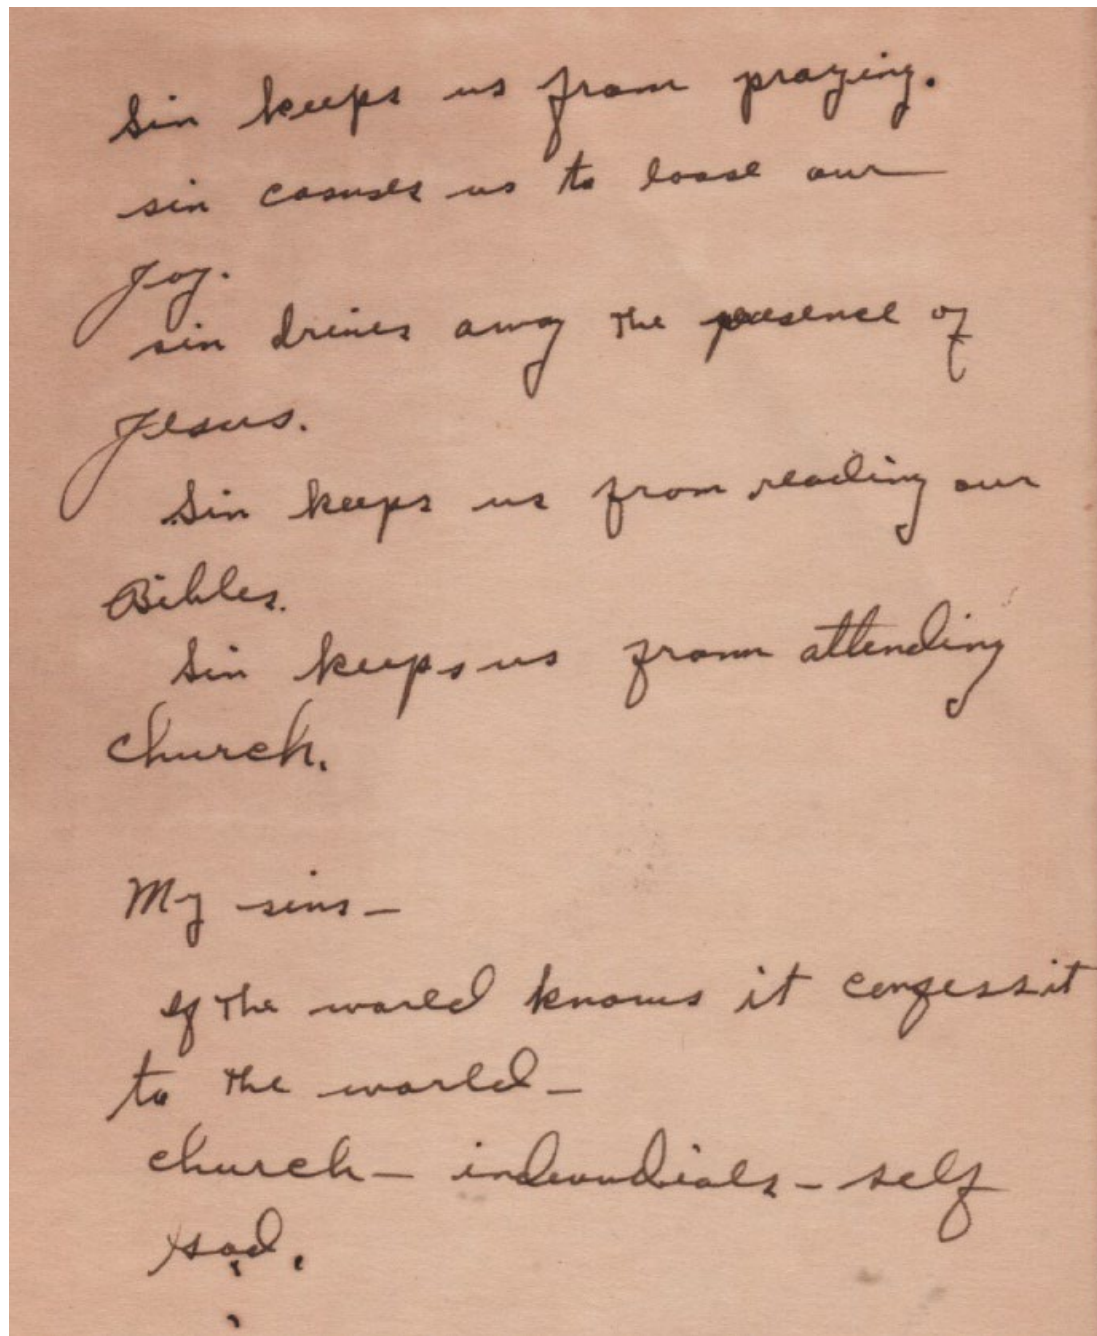 Sin keeps us from praying.
sin causes us to loose our
Joy.
sin drives away the presence of
Jesus.
Sin keeps us from reading our
Bibles.
Sin keeps us from attending
church.
My sins -
If the world knows it confess it
to the world -
church - indivudials - self